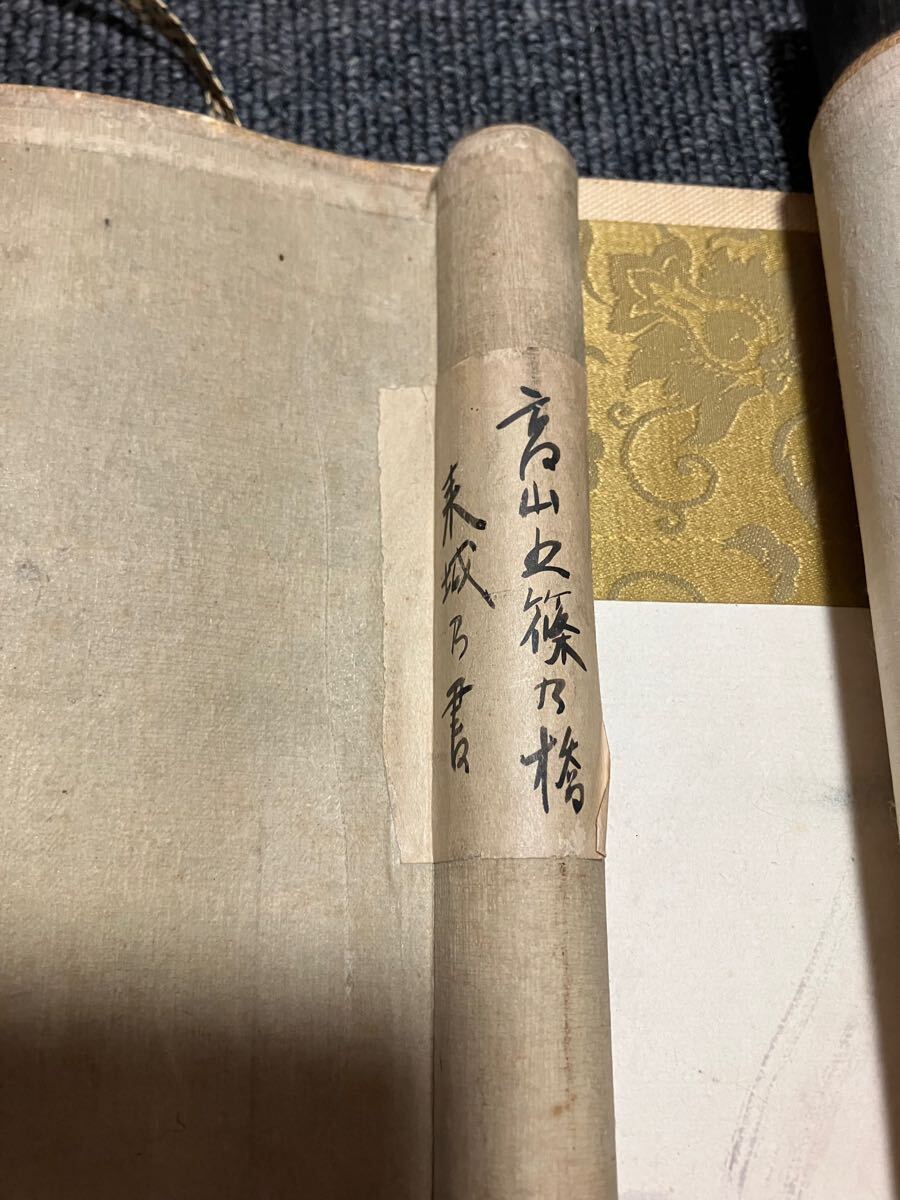 高山之篠乃橋
来城乃書